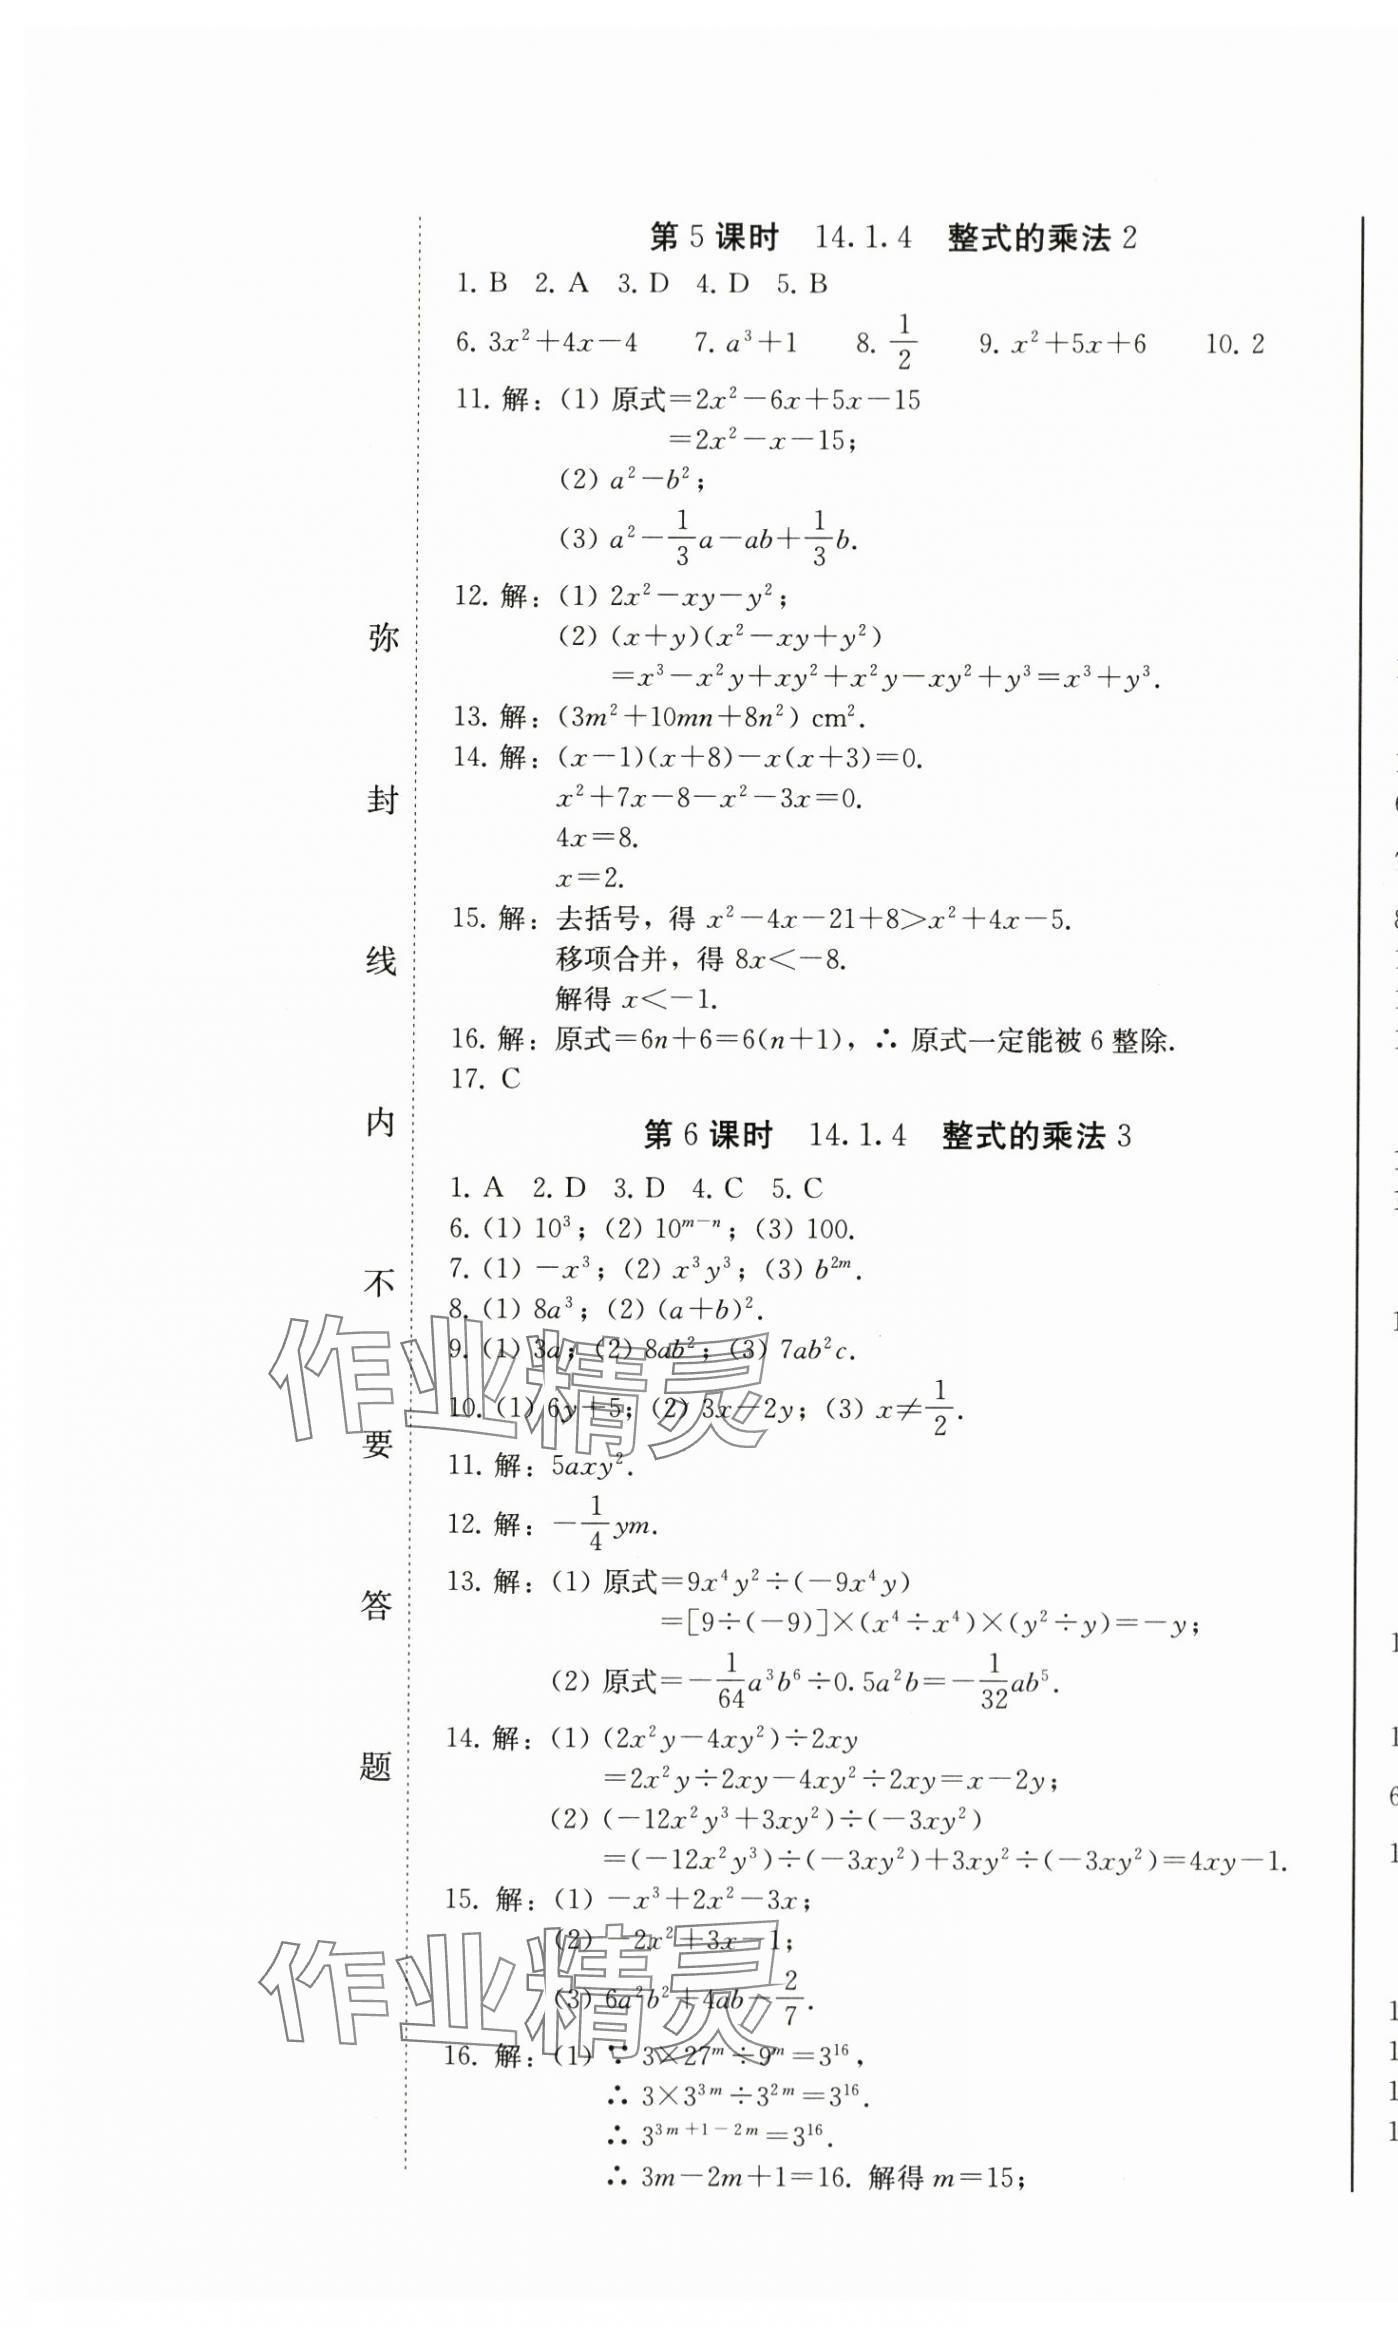 第 5 课时 14.1.4 整式的乘法 2
1. B 2. A 3. D 4. D 5. B
6. 3x²+4x−4 7. a³+1 8. 1/2 9. x²+5x+6 10. 2
11. 解：(1) 原式=2x²−6x+5x−15
=2x²−x−15；
(2) a²−b²；
(3) a²−1/3a−ab+1/3b.
12. 解：(1) 2x²−xy−y²；
(2) (x+y)(x²−xy+y²)
=x³−x²y+xy²+x²y−xy²+y³=x³+y³.
13. 解：(3m²+10mn+8n²) cm².
14. 解：(x−1)(x+8)−x(x+3)=0.
x²+7x−8−x²−3x=0.
4x=8.
x=2.
15. 解：去括号，得 x²−4x−21+8>x²+4x−5.
移项合并，得 8x<−8.
解得 x<−1.
16. 解：原式=6n+6=6(n+1)，∴ 原式一定能被 6 整除.
17. C
第 6 课时 14.1.4 整式的乘法 3
1. A 2. D 3. D 4. C 5. C
6. (1) 10³；(2) 10ᵐ⁻ⁿ；(3) 100.
7. (1) −x³；(2) x³y³；(3) b²ᵐ.
8. (1) 8a³；(2) (a+b)².
9. (1) 3a；(2) 8ab²；(3) 7ab²c.
10. (1) 6y+5；(2) 3x−2y；(3) x≠1/2.
11. 解：5axy².
12. 解：−1/4ym.
13. 解：(1) 原式=9x⁴y²÷(−9x⁴y)
=[9÷(−9)]×(x⁴÷x⁴)×(y²÷y)=−y；
(2) 原式=−1/64a³b⁶÷0.5a²b=−1/32ab⁵.
14. 解：(1) (2x²y−4xy²)÷2xy
=2x²y÷2xy−4xy²÷2xy=x−2y；
(2) (−12x²y³+3xy²)÷(−3xy²)
=(−12x²y³)÷(−3xy²)+3xy²÷(−3xy²)=4xy−1.
15. 解：(1) −x³+2x²−3x；
(2) −2x²+3x−1；
(3) 6a²b²+4ab−2/7.
16. 解：(1) ∵ 3×27ᵐ÷9ᵐ=3¹⁶，
∴ 3×3³ᵐ÷3²ᵐ=3¹⁶.
∴ 3³ᵐ⁺¹⁻²ᵐ=3¹⁶.
∴ 3m−2m+1=16. 解得 m=15；
弥
封
线
内
不
要
答
题
作业精灵
作业精灵